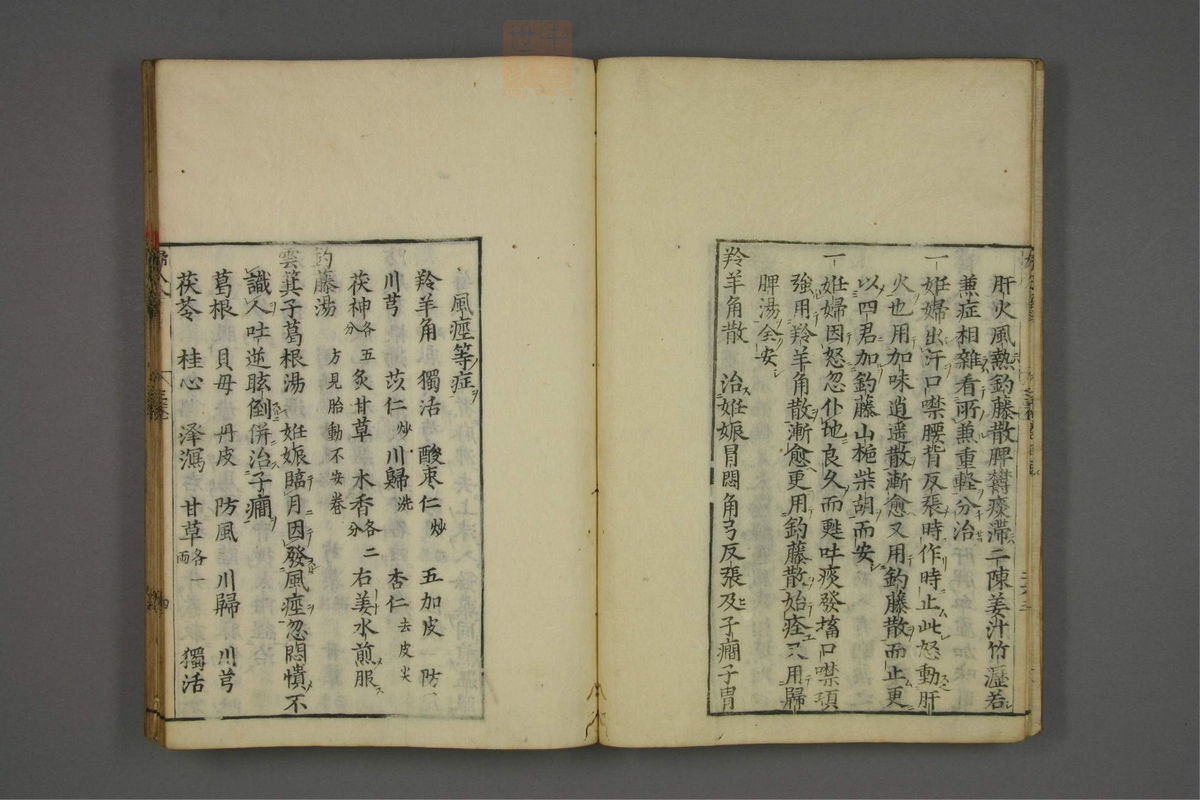 肝火風熱鈎藤散脾欝痰滞二陳姜汁竹瀝若
兼症相雜看所兼重軽分治
一妊婦出汗口噤腰背反張時作時止此怒動肝
火也用加味逍遥散漸愈又用鈎藤散而止更
以四君加鈎藤山梔柴胡而安
一妊婦因怒忽仆地良久而甦吐痰發搐口噤項
強用羚羊角散漸愈更用鈎藤散始痊又用歸
脾湯全安
羚羊角散　治妊娠冒悶角弓反張及子癇子冐
風痙等症
羚羊角　獨活　酸枣仁炒　五加皮　防
川芎　苡仁炒　川歸洗　杏仁去皮尖
茯神各五分　炙甘草　木香各二分　右姜水煎服
鈎藤湯　方見胎動不安卷
雲箕子葛根湯　妊娠臨月因發風痙忽悶憒不
識人吐逆眩倒併治子癇
葛根　貝母　丹皮　防風　川歸　川芎
茯苓　桂心　泽瀉　甘草各一兩　獨活